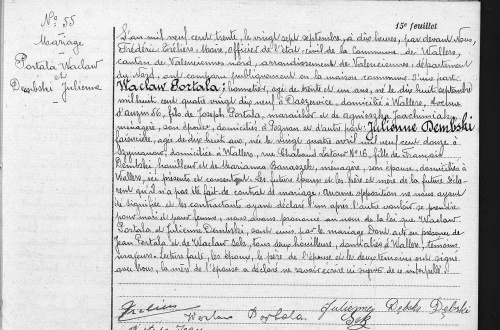 15e feuillet
No 55
Mariage
Portala Waclaw
et
Dembski Julienne
L'an mil neuf cent trente, le vingt sept septembre, à dix heures, par devant Nous,
Frédéric Méliers, Maire, officier de l'état civil de la Commune de Wallers,
canton de Valenciennes nord, arrondissement de Valenciennes, département
du Nord, ont comparu publiquement en la maison commune. D'une part:
Waclaw Portala, bonnetier, âgé de trente et un ans, né le dix huit septembre
mil huit cent quatre vingt dix neuf à Daszewice, domicilié à Wallers, Avenue
d'Anzin 86, fils de Joseph Portala, maraîcher et de Agnieszka Joachimiak,
ménagère, son épouse, domiciliés à Poznan et d'autre part: Julienne Dembski,
âgée de dix huit ans, née le vingt quatre avril mil neuf cent douze à
Szymanowo, domiciliée à Wallers, rue Chaband Latour No 16, fille de François
Dembski houilleur et de Marianna Banaszek, ménagère, son épouse, domiciliés à
Wallers, ici présents et consentant. Les futurs époux et les père et mère de la future décla-
rent qu'il n'a pas été fait de contrat de mariage. Aucune opposition ne nous ayant
été signifiée et les contractants ayant déclaré l'un après l'autre vouloir se prendre
pour mari et pour femme, nous avons prononcé au nom de la loi que Waclaw
Portala et Julienne Dembski, sont unis par le mariage. Dont acte en présence de
Jean Portala et de Waclaw Sek, tous deux houilleurs, domiciliés à Wallers, témoins
majeurs. Lecture faite, les époux, le père de l'épouse et les témoins ont signé
avec Nous, la mère de l'épouse a déclaré ne savoir écrire ni signer de ce interpellée.
Julienne Debska Debski
Waclaw Portala Sek